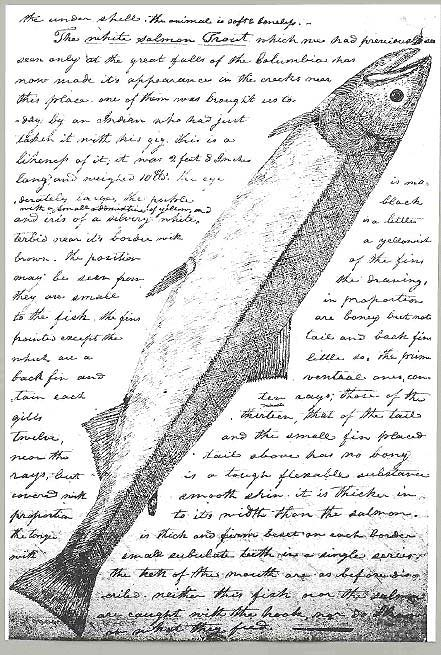 the under shell. the animal is soft & boneless. —
The white salmon Trout which we had previously
seen only at the great falls of the Columbia has
now made it's appearance in the creeks near
this place. one of them was brought us to
-day by an Indian who had just
taken it with his gig. this is a
likeness of it, it was 2 feet 8 Inches
long and weighed 10 lbs. the eye is mo-
derately large, the puple black
with a small admixture of yellow, and
and iris of a silvery white, is a little
terbid near it's border with a yellowish
brown. the position of the fins
may be seen from the drawing,
they are small in proportion
to the fish. the fins are boney but not
pointed except the tail and back fins
which are a little so. the prime
back fin and ventral ones, con-
tain each ten rays; those of the
gills thirteen, that of the tail
twelve, and the small fin placed
near the tail above has no bony
rays, but is a tough flexable substance
covered with smooth skin. it is thicker in
proportion to it's width than the salmon.
the tongue is thick and firm beset on each border
with small subulate teeth in a single series.
the teeth of the mouth are as before dis-
cribed. neither this fish nor the salmon
are caught with the hook, nor do I know
on what they feed.